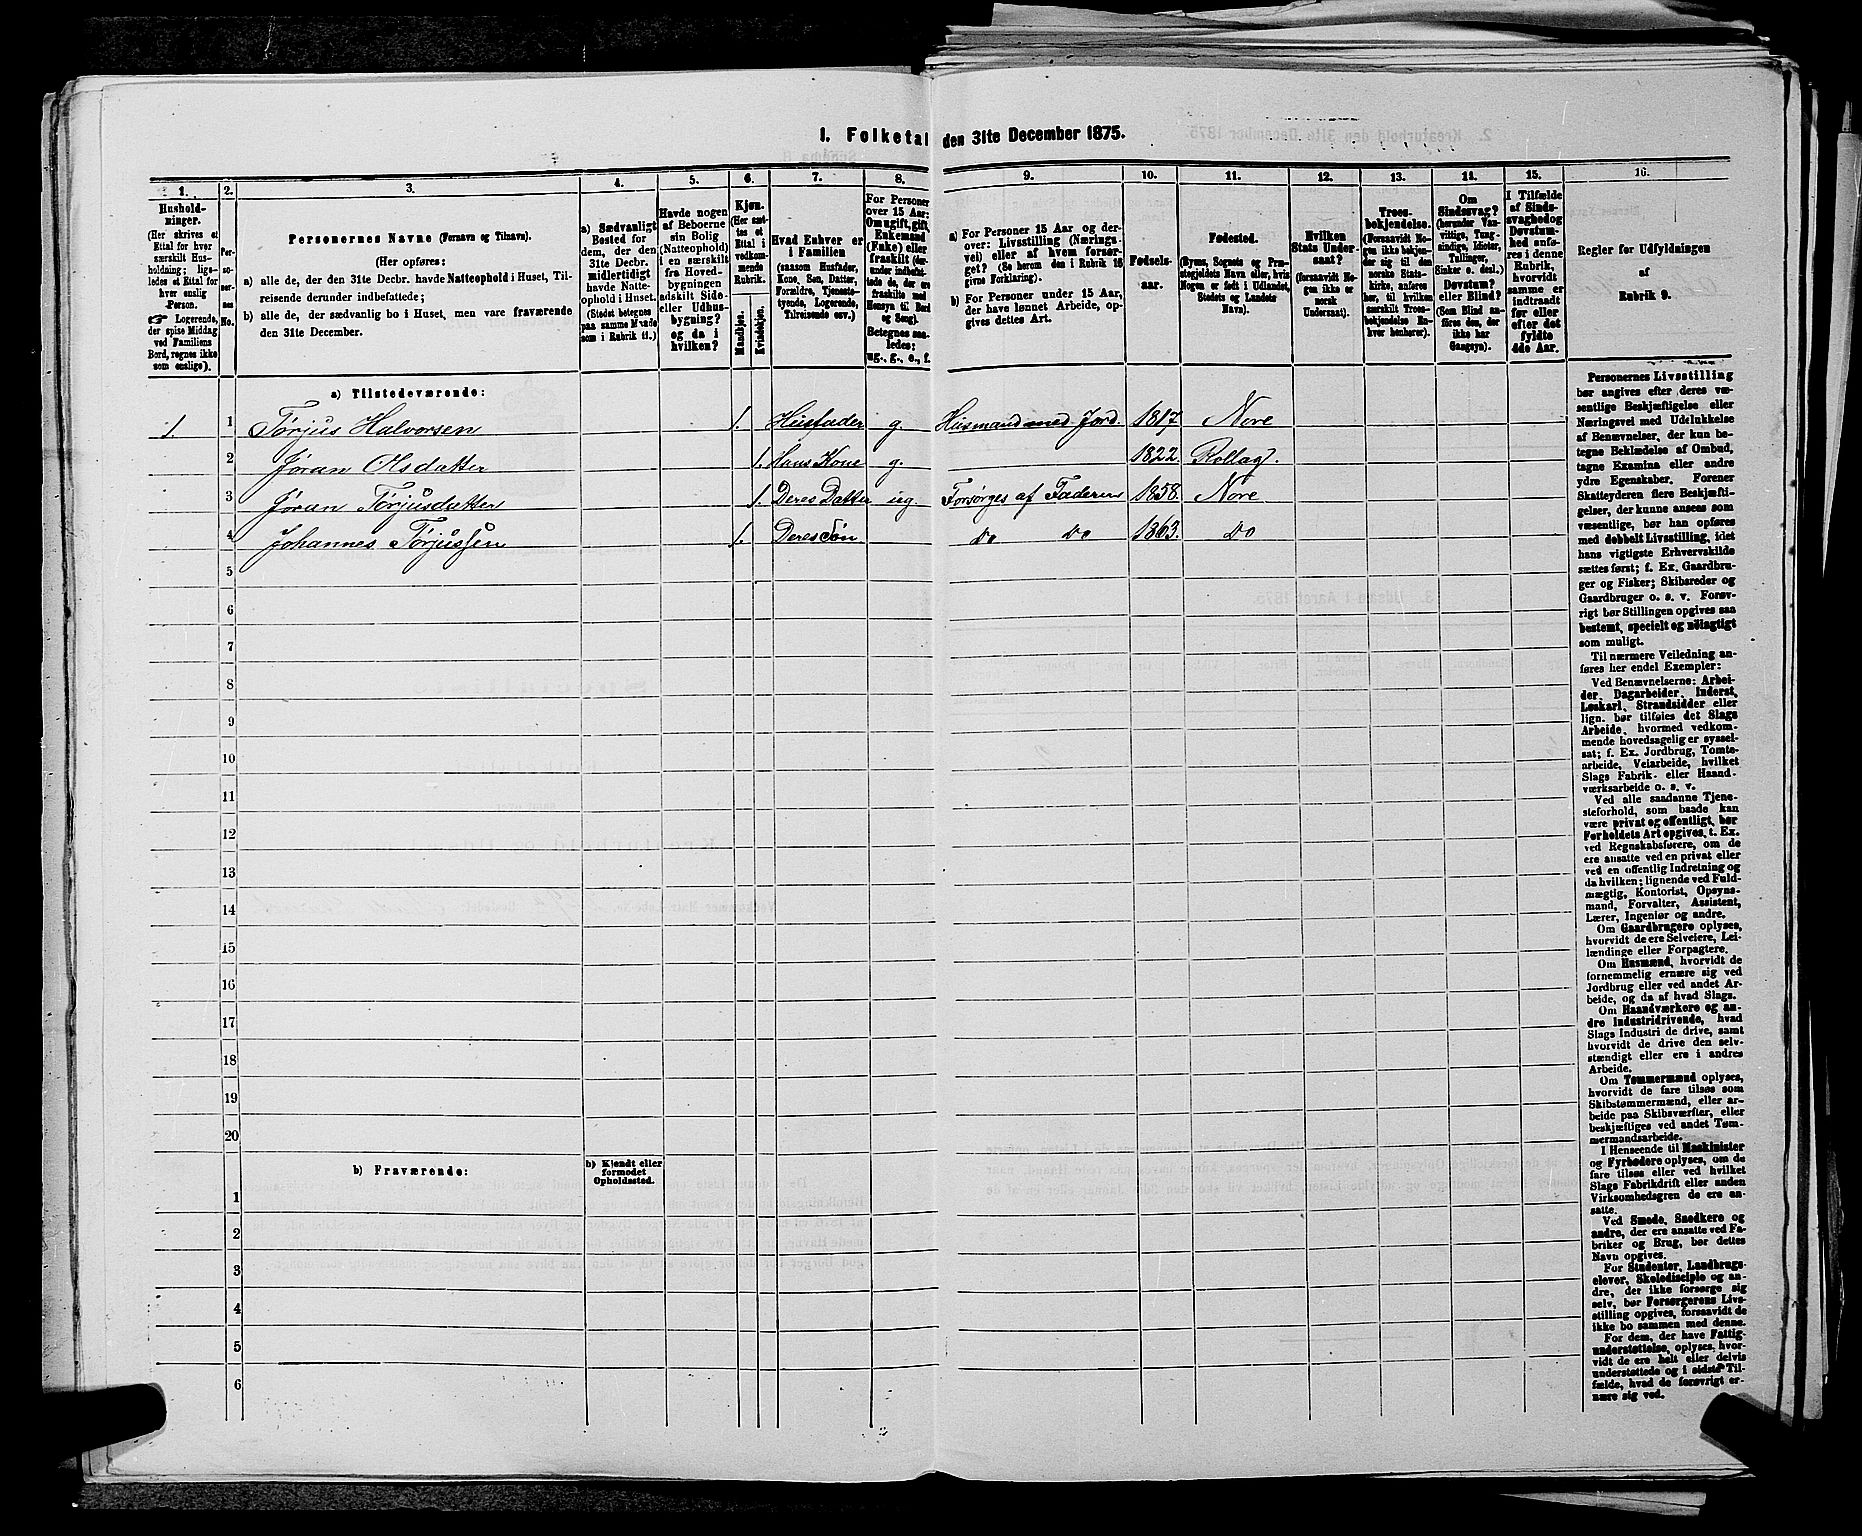 1. Folketal den 31te December 1875.
1. 2. 3. 4. 5. 6. 7. 8. 9. 10. 11. 12. 13. 14. 15. 16.
Hushold-
ninger.
(Her skrives et
Ettal for hver
særskilt Hus-
holdning; lige-
ledes et Ettal for
hver enslig
Person.
☞ Logerende,
der spise Middag
ved Familiens
Bord, regnes ikke
som enslige).
Per-
so-
ner-
nes
No.
Personernes Navne (Fornavn og Tilnavn).
(Her opføres:
a) alle de, der den 31te Decbr. havde Natteophold i Huset, Til-
reisende derunder indbefattede;
b) alle de, der sædvanlig bo i Huset, men vare fraværende
den 31te December.
a) Sædvanligt
Bosted for
dem, der den
31te Decbr.
midlertidigt
havde Natte-
ophold i Huset.
(Stedet betegnes
paa samme Maade
som i Rubrik 11.)
Havde nogen
af Beboerne
sin Bolig
(Natteophold)
i en særskilt
fra Hoved-
bygningen
adskilt Side-
eller Udhus-
bygning?
og da i
hvilken?
Kjøn.
(Her sæt-
tes et
Ettal i
vedkom-
mende
Rubrik.
Mandkjøn.
Kvindekjøn.
Hvad Enhver er
i Familien
(saasom Husfader,
Kone, Søn, Datter,
Forældre, Tjeneste-
tyende, Logerende,
Tilreisende osv.)
For Personer
over 15 Aar:
Om ugift, gift,
Enkemand
(Enke) eller
fraskilt (der-
under indbefat-
tede de, der ere
fraskilte med
Hensyn til Bord
og Seng).
Betegnes saa-
ledes:
ug., g., e., f.
a) For Personer 15 Aar og der-
over: Livsstilling (Nærings-
vei) eller af hvem forsør-
get? (Se herom den i Rubrik 16
givne Forklaring).
b) For Personer under 15 Aar,
der have lønnet Arbeide, op-
gives dettes Art.
Fødsels-
aar.
Fødested.
(Byens, Sognets og Præ-
stegjeldets Navn eller, hvis
Nogen er født i Udlandet,
Stedets og Landets
Navn).
Hvilken
Stats Under-
saat?
(forsaavidt No-
gen ikke er
norsk
Undersaat).
Troes-
bekjendelse.
(Forsaavidt No-
gen ikke bekjen-
der sig til den
norske Stats-
kirke, anføres
her, til hvilken
særskilt Troes-
bekjendelse En-
hver henhører).
Om
Sindssvag?
(herunder Van-
vittige, Tung-
sindige, Idioter,
Tullinger,
Sinker o. desl.)
Døvstum?
eller Blind?
(Som Blind an-
føres den, der
ikke har
Gangsyn).
I Tilfælde
af Sinds-
svaghed og
Døvstum-
hed anfø-
res i denne
Rubrik,
hvorvidt
samme er
indtraadt
før eller
efter det
fyldte
4de Aar.
Regler for Udfyldningen
af
Rubrik 9.
a) Tilstedeværende:
1. 1 Tørjus Halvorsen 1. Husfader g. Husmand med Jord. 1817. Nore
2 Jøran Olsdatter 1. Hans Kone g. 1822. Rollag.
3 Jøran Tørjusdatter 1. Deres Datter ug. Forsørges af Faderen 1858. Nore
4 Johannes Tørjussen 1. Deres Søn do do 1863. do
5
6
7
8
9
10
11
12
13
14
15
16
17
18
19
20
b) Fraværende:
b) Kjendt eller
formodet
Opholdssted.
1
2
3
4
5
6
Personernes Livsstilling
bør angives efter deres væ-
sentlige Beskjæftigelse eller
Næringsvei med Udelukkelse
af Benævnelser, der kun be-
tegne Beklædelse af Ombud,
tagne Examina eller andre
ydre Egenskaber. Forener
Skatteyderen flere Beskjæfti-
gelser, der kunne ansees som
væsentlige, bør han opføres
med dobbelt Livsstilling, idet
hans vigtigste Erhvervskilde
sættes først; f. Ex. Gaardbru-
ger og Fisker; Skibsreder og
Gaardbruger o. s. v. Forøv-
rigt bør Stillingen opgives saa
bestemt, specielt og nöiagtigt
som muligt.
Til nærmere Veiledning an-
føres her endel Exempler:
Ved Benævnelserne: Arbei-
der, Dagarbeider, Inderst,
Løskarl, Strandsidder eller
lign. bør tilføies det Slags
Arbeide, hvormed vedkom-
mende hovedsagelig er syssel-
sat; f. Ex. Jordbrug, Tomte-
arbeide, Veiarbeide, hvilket
Slags Fabrik- eller Haand-
værksarbeide o. s. v.
Ved alle saadanne Tjene-
steforhold, som baade kan
være privat og offentligt, bør
Forholdets Art opgives, t. Ex.
ved Regnskabsførere, om de
ere ansatte ved en privat eller
ved en offentlig Indretning og
da hvilken; lignende ved Fuld-
mægtig, Kontorist, Opsyns-
mand, Forvalter, Assistent,
Lærer, Ingeniør og andre.
Om Gaardbrugere oplyses,
hvorvidt de ere Selveiere, Lei-
lændinge eller Forpagtere.
Om Husmænd, hvorvidt de
fornemmelig ernære sig ved
Jordbrug eller ved andet Ar-
beide, og da af hvad Slags.
Om Haandværkere og an-
dre Industridrivende, hvad
Slags Industri de drive, samt
hvorvidt de drive den selv-
stændigt eller ere i andres
Arbeide.
Om Tømmermænd oplyses,
hvorvidt de fare tilsøs som
Skibstømmermænd, eller ar-
beide paa Skibsværfter, eller
beskjæftiges ved andet Tøm-
mermandsarbeide.
I Henseende til Maskinister
og Fyrbødere oplyses, om de
fare tilsøs eller ved hvilket
Slags Fabrikdrift eller anden
Virksomhedsgren de ere an-
satte.
Ved Smede, Snedkere og
andre, der ere ansatte ved Fa-
briker og Brug, bør dettes
Navn opgives.
For Studenter, Landbrugs-
elever, Skoledisciple og an-
dre, der ikke forsørge sig
selv, bør Forsørgerens Livs-
stilling opgives, forsaavidt de
ikke bo sammen med denne.
For dem, der have Fattig-
understøttelse, oplyses, hvor-
vidt de ere helt eller delvis
understøttede og i sidste Til-
fælde, hvad de forøvrigt er-
nære sig ved.